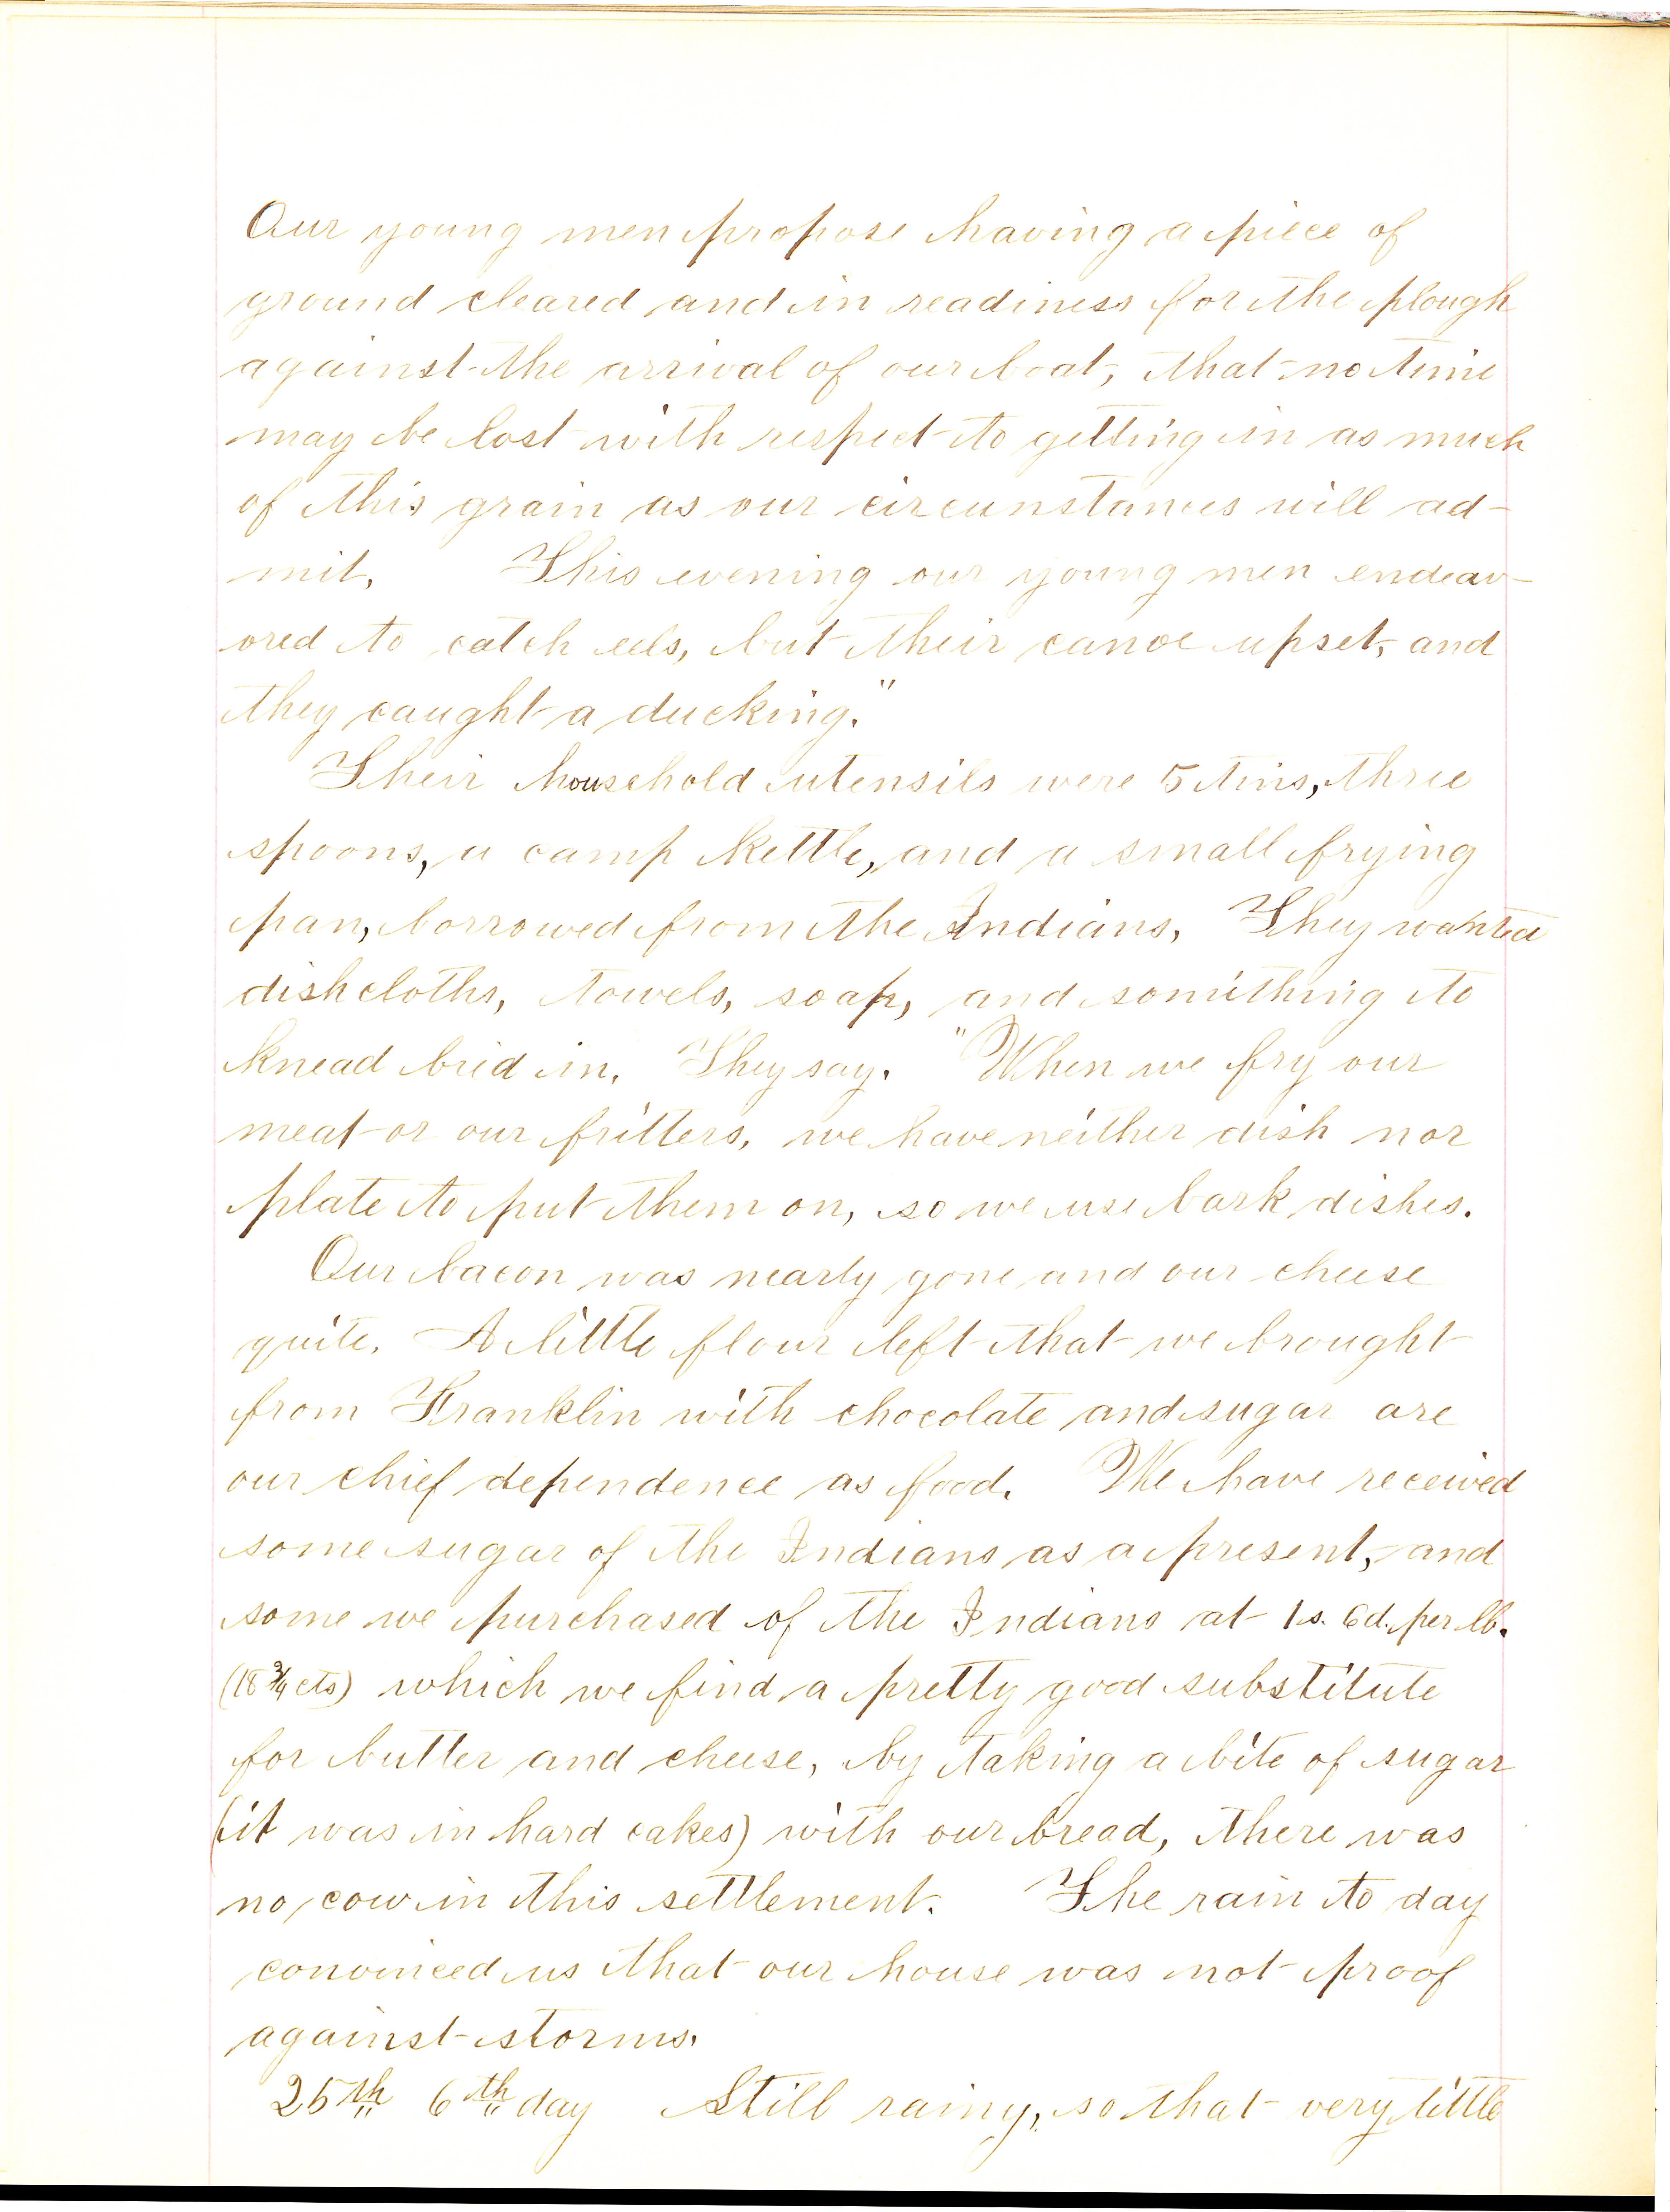 Our young men propose having a piece of
ground cleared and in readiness for the plough
against the arrival of our boat, that no time
may be lost with respect to getting in as much
of this grain as our circumstances will ad-
mit. This evening our young men endeav-
ored to catch eels, but their canoe upset, and
they caught a ducking."
Their household utensils were 5 tins, three
spoons, a camp kettle, and a small frying
pan, borrowed from the Indians. They wanted
dishcloths, towels, soap, and something to
knead bred in. They say. "When we fry our
meat or our fritters, we have neither dish nor
plate to put them on, so we use bark dishes.
Our bacon was nearly gone and our cheese
quite. A little flour left that we brought
from Franklin with chocolate and sugar are
our chief dependence as food. We have received
some sugar of the Indians as a present, and
some we purchased of the Indians at 1s. 6d. per lb.
(18 3/4 cts) which we find a pretty good substitute
for butter and cheese, by taking a bite of sugar
(it was in hard cakes) with our bread, there was
no cow in this settlement. The rain to day
convinced us that our house was not proof
against storms.
25th 6th day Still rainy, so that very little